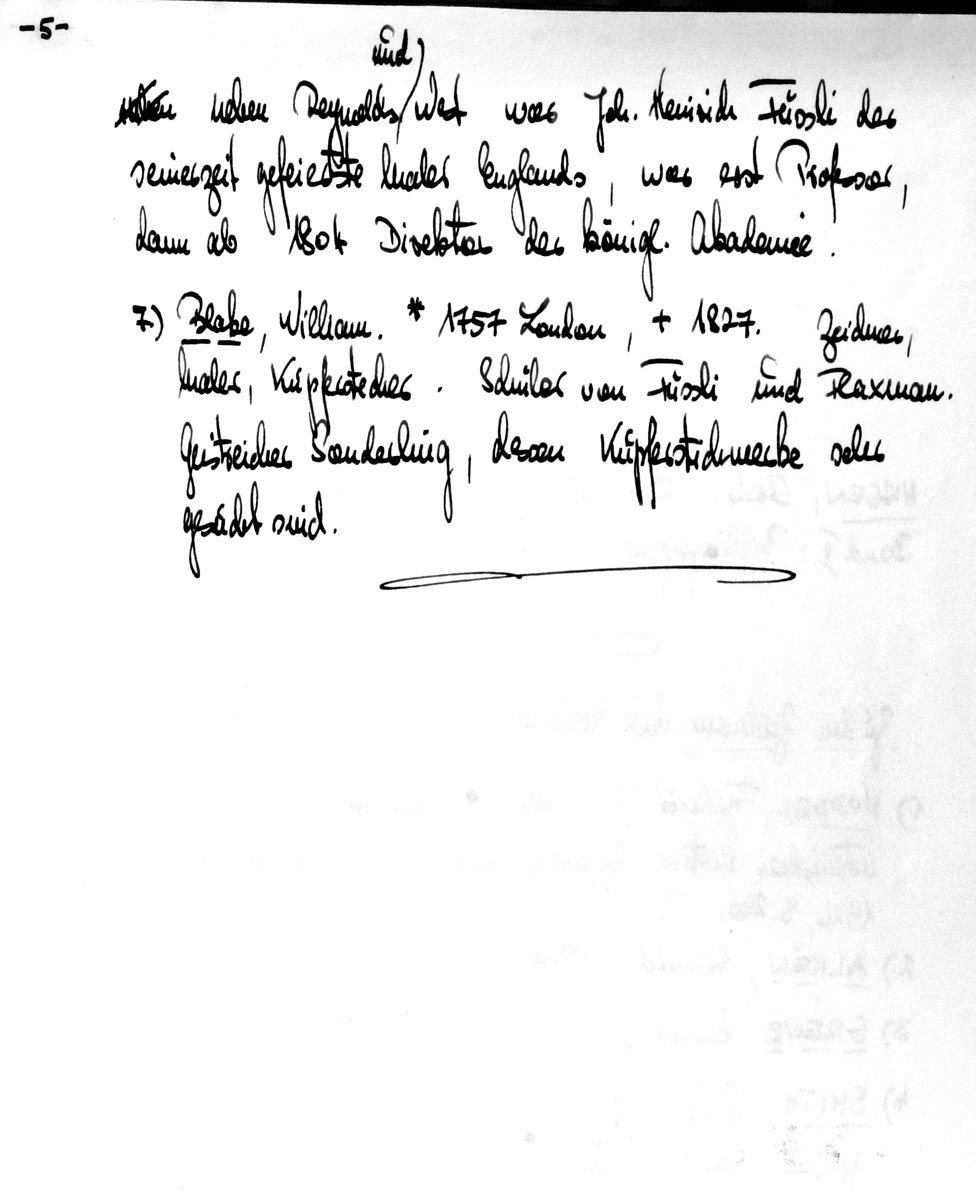 -5-
und
neben Reynolds/West war Joh. Heinrich Füssli der
seinerzeit gefeiertste Maler Englands, war erst Professor,
dann ab 1804 Direktor der königl. Akademie.
7.) Blake, William. * 1757 London, + 1827. Zeichner,
Maler, Kupferstecher. Schüler von Füssli und Flaxman.
Geistreicher Sonderling, dessen Kupferstichwerke sehr
gesucht sind.